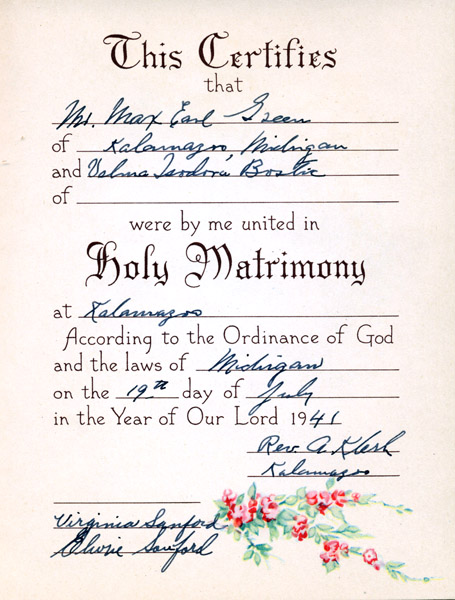 This Certifies
that
Mr. Max Earl Green
of Kalamazoo, Michigan
and Velma Isodora Bostic
of
were by me united in
Holy Matrimony
at Kalamazoo
According to the Ordinance of God
and the laws of Michigan
on the 19th day of July
in the Year of Our Lord 1941
Rev. A. Klesh
Kalamazoo
Virginia Sanford
Sanford